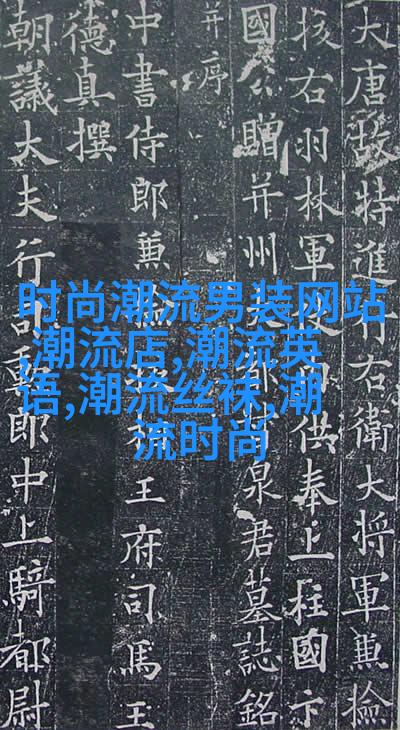 大唐故特進行右衛大將軍兼檢
校右羽林軍供奉上柱國卞
國公贈并州都督泉君墓誌銘
并序
中書侍郎兼王府司馬王
德真撰
朝議大夫行司勳郎中上騎都尉
时尚潮流男装网站
,潮流店,潮流英
语,潮流丝袜,潮
流时尚